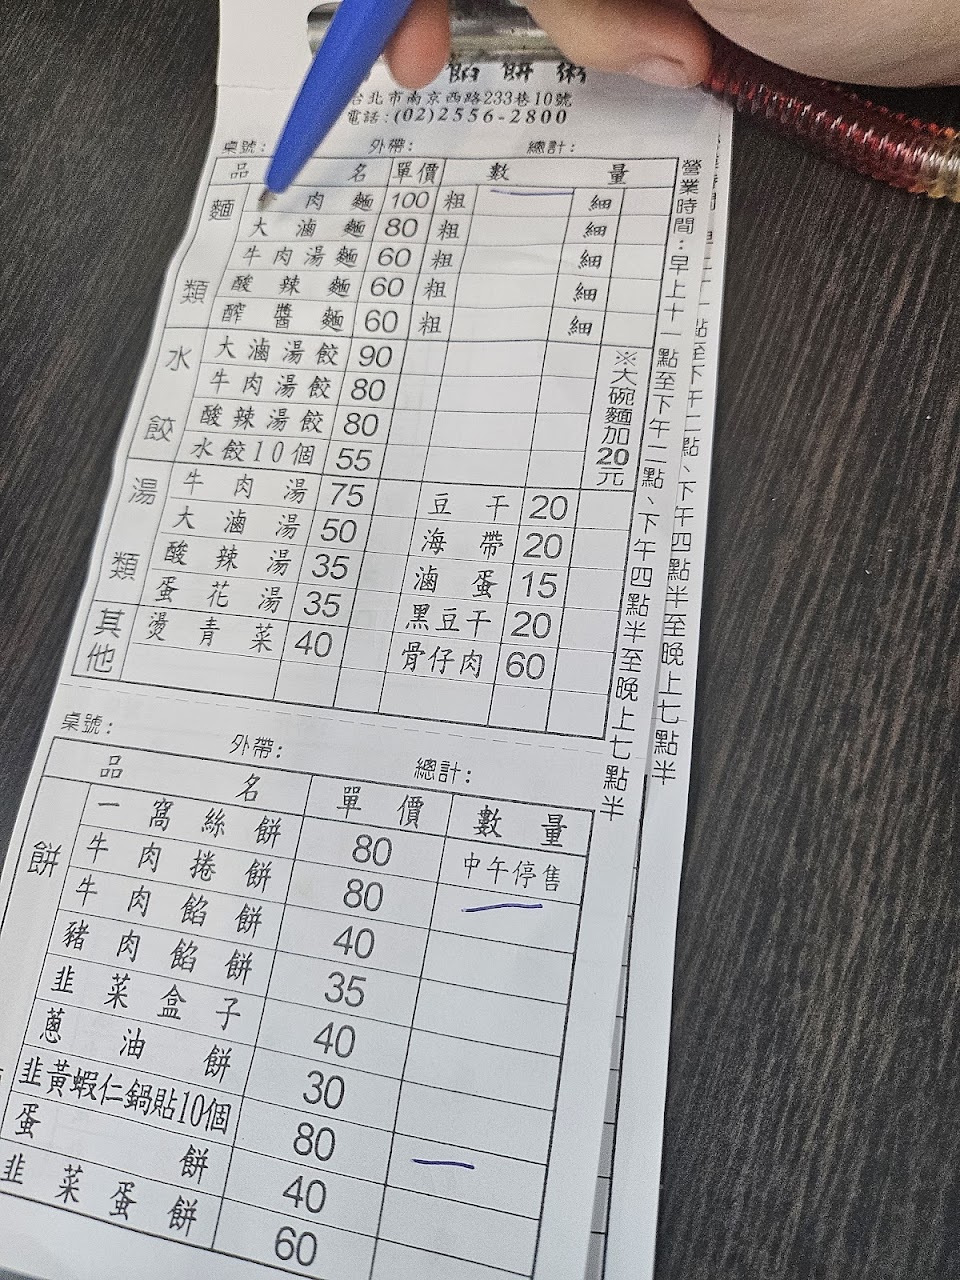 餡餅粥
台北市南京西路233巷10號
電話:(02)2556-2800
桌號: 外帶: 總計:
品名 單價 數量
麵類
肉麵 100 粗 細
大滷麵 80 粗 細
牛肉湯麵 60 粗 細
酸辣麵 60 粗 細
醡醬麵 60 粗 細
水餃
大滷湯餃 90
牛肉湯餃 80
酸辣湯餃 80
水餃10個 55
※大碗麵加20元
湯類
牛肉湯 75 豆干 20
大滷湯 50 海帶 20
酸辣湯 35 滷蛋 15
蛋花湯 35 黑豆干 20
其他
燙青菜 40 骨仔肉 60
營業時間:早上十一點至下午二點、下午四點半至晚上七點半
點至下午二點、下午四點半至晚上七點半
桌號: 外帶: 總計:
品名 單價 數量
餅
一窩絲餅 80 中午停售
牛肉捲餅 80
牛肉餡餅 40
豬肉餡餅 35
韭菜盒子 40
蔥油餅 30
韭黃蝦仁鍋貼10個 80
蛋餅 40
韭菜蛋餅 60